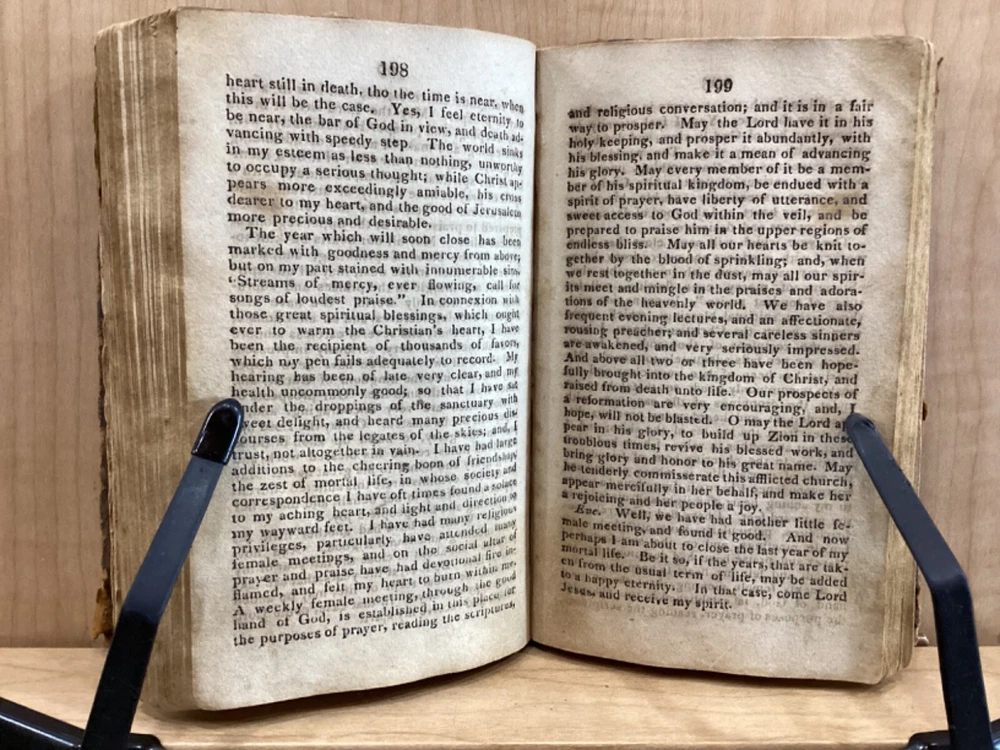 198
heart still in death, tho the time is near, when
this will be the case. Yes, I feel eternity to
be near, the bar of God in view, and death ad-
vancing with speedy step. The world sinks
in my esteem as less than nothing, unworthy
to occupy a serious thought; while Christ ap-
pears more exceedingly amiable, his cross
dearer to my heart, and the good of Jerusalem
more precious and desirable.
The year which will soon close has been
marked with goodness and mercy from above;
but on my part stained with innumerable sins.
"Streams of mercy, ever flowing, call for
songs of loudest praise." In connexion with
those great spiritual blessings, which ought
ever to warm the Christian's heart, I have
been the recipient of thousands of favors,
which my pen fails adequately to record. My
hearing has been of late very clear, and my
health uncommonly good; so that I have sat
under the droppings of the sanctuary with
sweet delight, and heard many precious dis
courses from the legates of the skies; and, I
trust, not altogether in vain. I have had large
additions to the cheering boon of friendship,
the zest of mortal life, in whose society and
correspondence I have oft times found a solace
to my aching heart, and light and direction to
my wayward feet. I have had many religious
privileges, particularly have attended many
female meetings, and on the social altar of
prayer and praise have had devotional fire in-
flamed, and felt my heart to burn within me.
A weekly female meeting, through the good
hand of God, is established in this place, for
the purposes of prayer, reading the scriptures,
199
and religious conversation; and it is in a fair
way to prosper. May the Lord have it in his
holy keeping, and prosper it abundantly, with
his blessing, and make it a mean of advancing
his glory. May every member of it be a mem-
ber of his spiritual kingdom, be endued with a
spirit of prayer, have liberty of utterance, and
sweet access to God within the veil, and be
prepared to praise him in the upper regions of
endless bliss. May all our hearts be knit to-
gether by the blood of sprinkling; and, when
we rest together in the dust, may all our spir-
its meet and mingle in the praises and adora-
tions of the heavenly world. We have also
frequent evening lectures, and an affectionate,
rousing preacher; and several careless sinners
are awakened, and very seriously impressed.
And above all two or three have been hope-
fully brought into the kingdom of Christ, and
raised from death unto life. Our prospects of
a reformation are very encouraging, and, I
hope, will not be blasted. O may the Lord ap
pear in his glory, to build up Zion in these
troublous times, revive his blessed work, and
bring glory and honor to his great name. May
he tenderly commisserate this afflicted church,
appear mercifully in her behalf, and make her
a rejoicing and her people a joy.
Eve. Well, we have had another little fe-
male meeting, and found it good. And now
perhaps I am about to close the last year of my
mortal life. Be it so, if the years, that are tak-
en from the usual term of life, may be added
to a happy eternity. In that case, come Lord
Jesus, and receive my spirit.